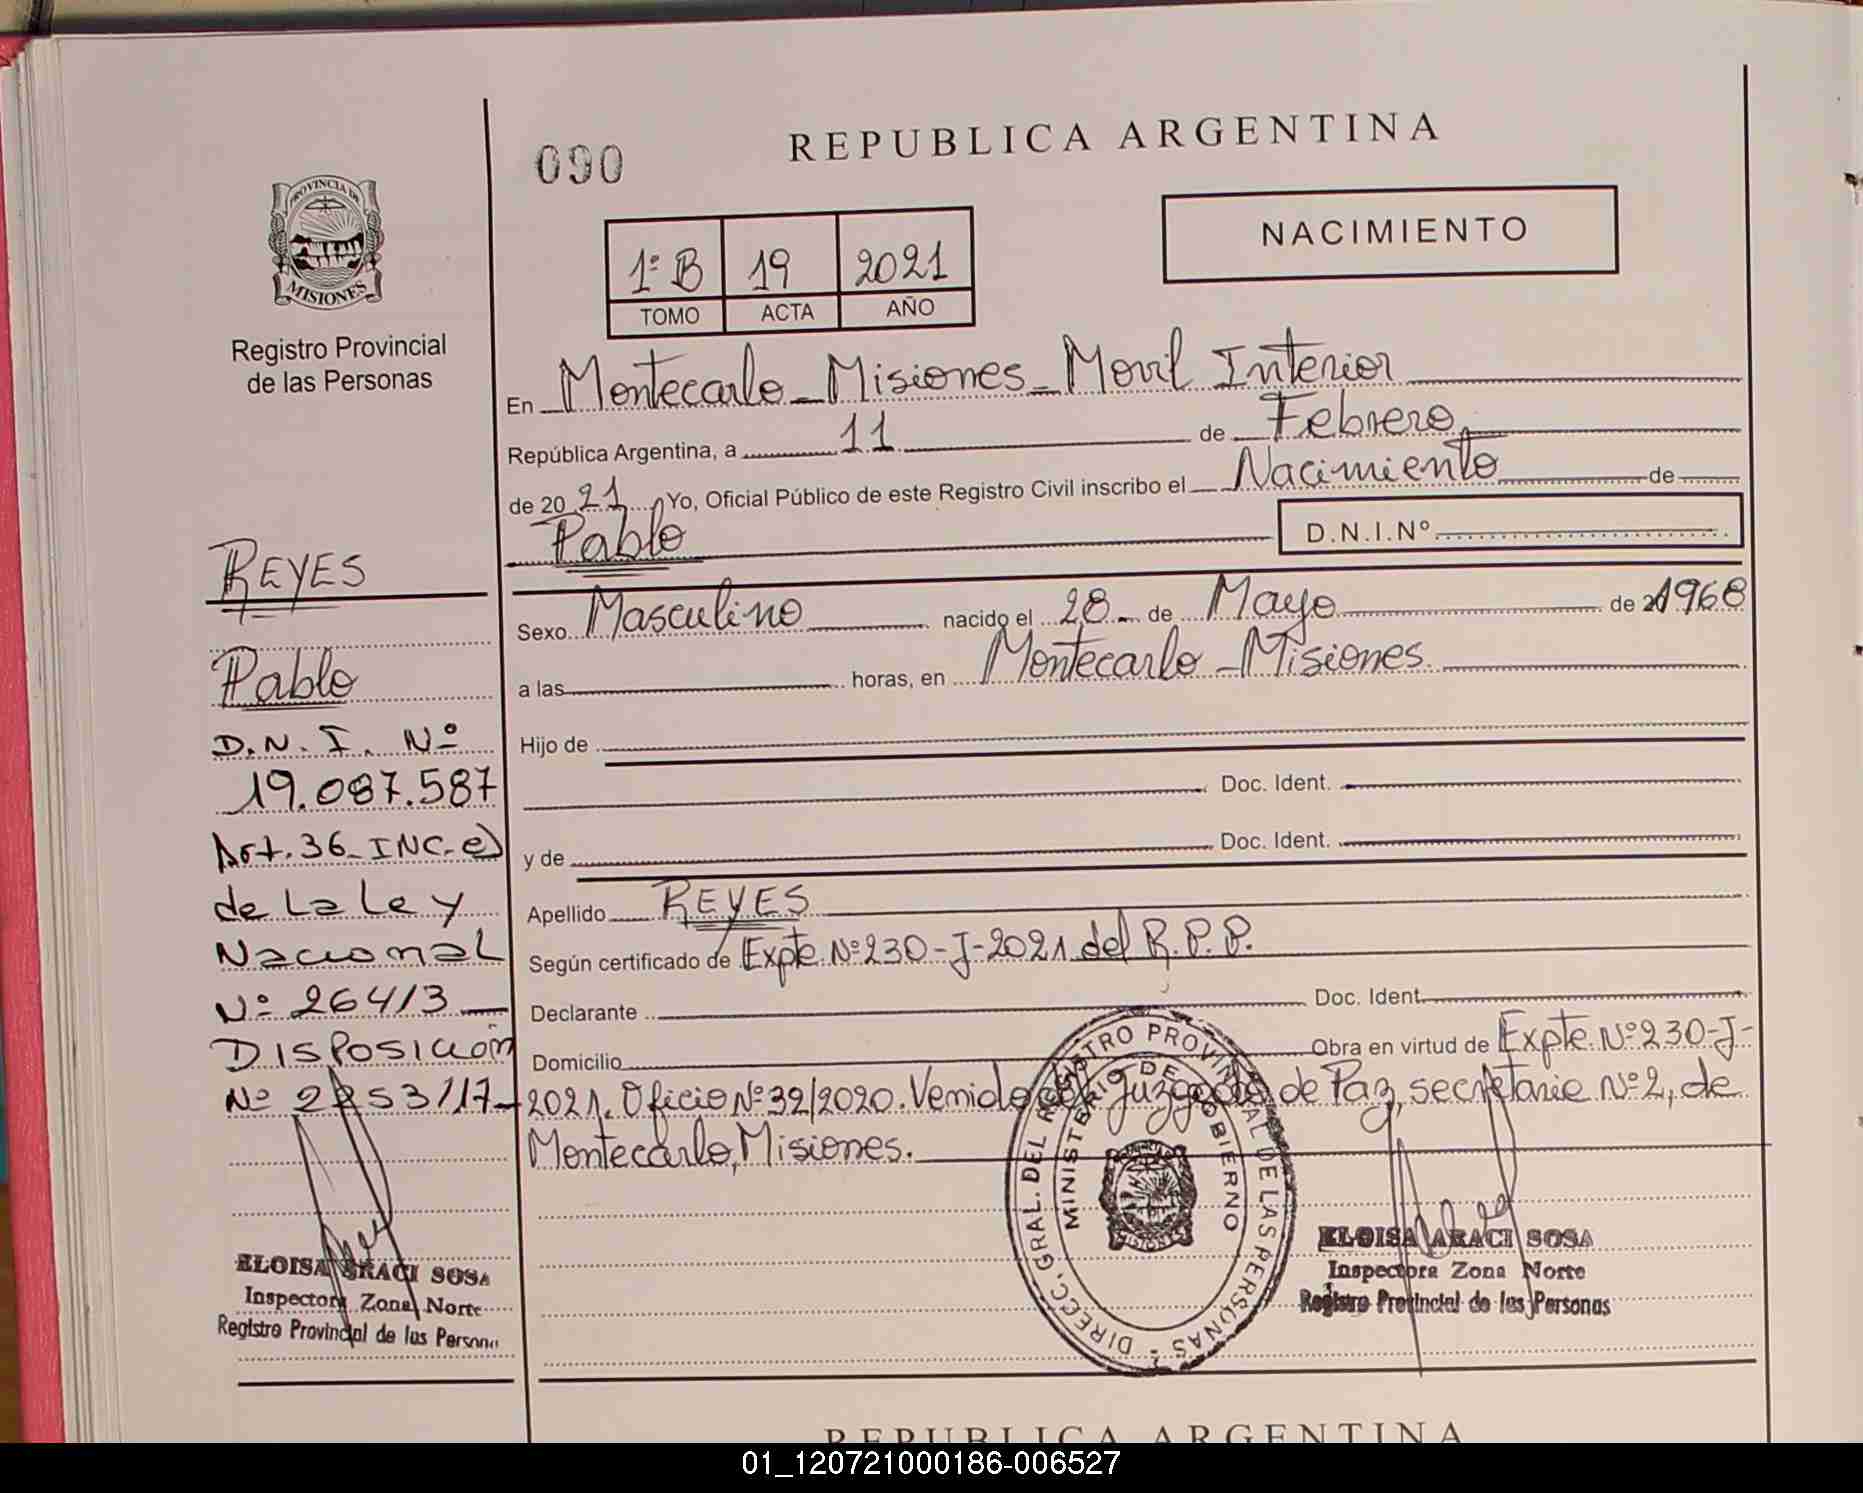 090
REPUBLICA ARGENTINA
PROVINCIA DE
MISIONES
Registro Provincial
de las Personas
NACIMIENTO
1º B 19 2021
TOMO ACTA AÑO
En Montecarlo - Misiones - Movil Interior
República Argentina, a 11 de Febrero
de 20 21 Yo, Oficial Público de este Registro Civil inscribo el Nacimiento de
Pablo D.N.I.Nº
Sexo Masculino nacido el 28 de Mayo de 1968
a las horas, en Montecarlo - Misiones
Hijo de
Doc. Ident.
y de Doc. Ident.
Apellido REYES
Según certificado de Expte. Nº 230-J-2021 del R.P.P.
Declarante Doc. Ident.
Domicilio Obra en virtud de Expte. Nº 230-J-
2021. Oficio Nº 39/2020. Venido del Juzgado de Paz, secretarie Nº 2, de
Montecarlo, Misiones.
REYES
Pablo
D.N.I. Nº
19.087.587
Art. 36 - INC. e)
de La Ley
Nacional
Nº 26413
DISPOSICIÓN
Nº 2253/17
ELOISA ARACI SOSA
Inspectora Zona Norte
Registro Provincial de las Persona
DIRECC. GRAL. DEL REGISTRO PROVINCIAL DE LAS PERSONAS -
MINISTERIO DE GOBIERNO
MISIONES
ELOISA ARACI SOSA
Inspectora Zona Norte
Registro Provincial de las Personas
REPUBLICA ARGENTINA
01_120721000186-006527